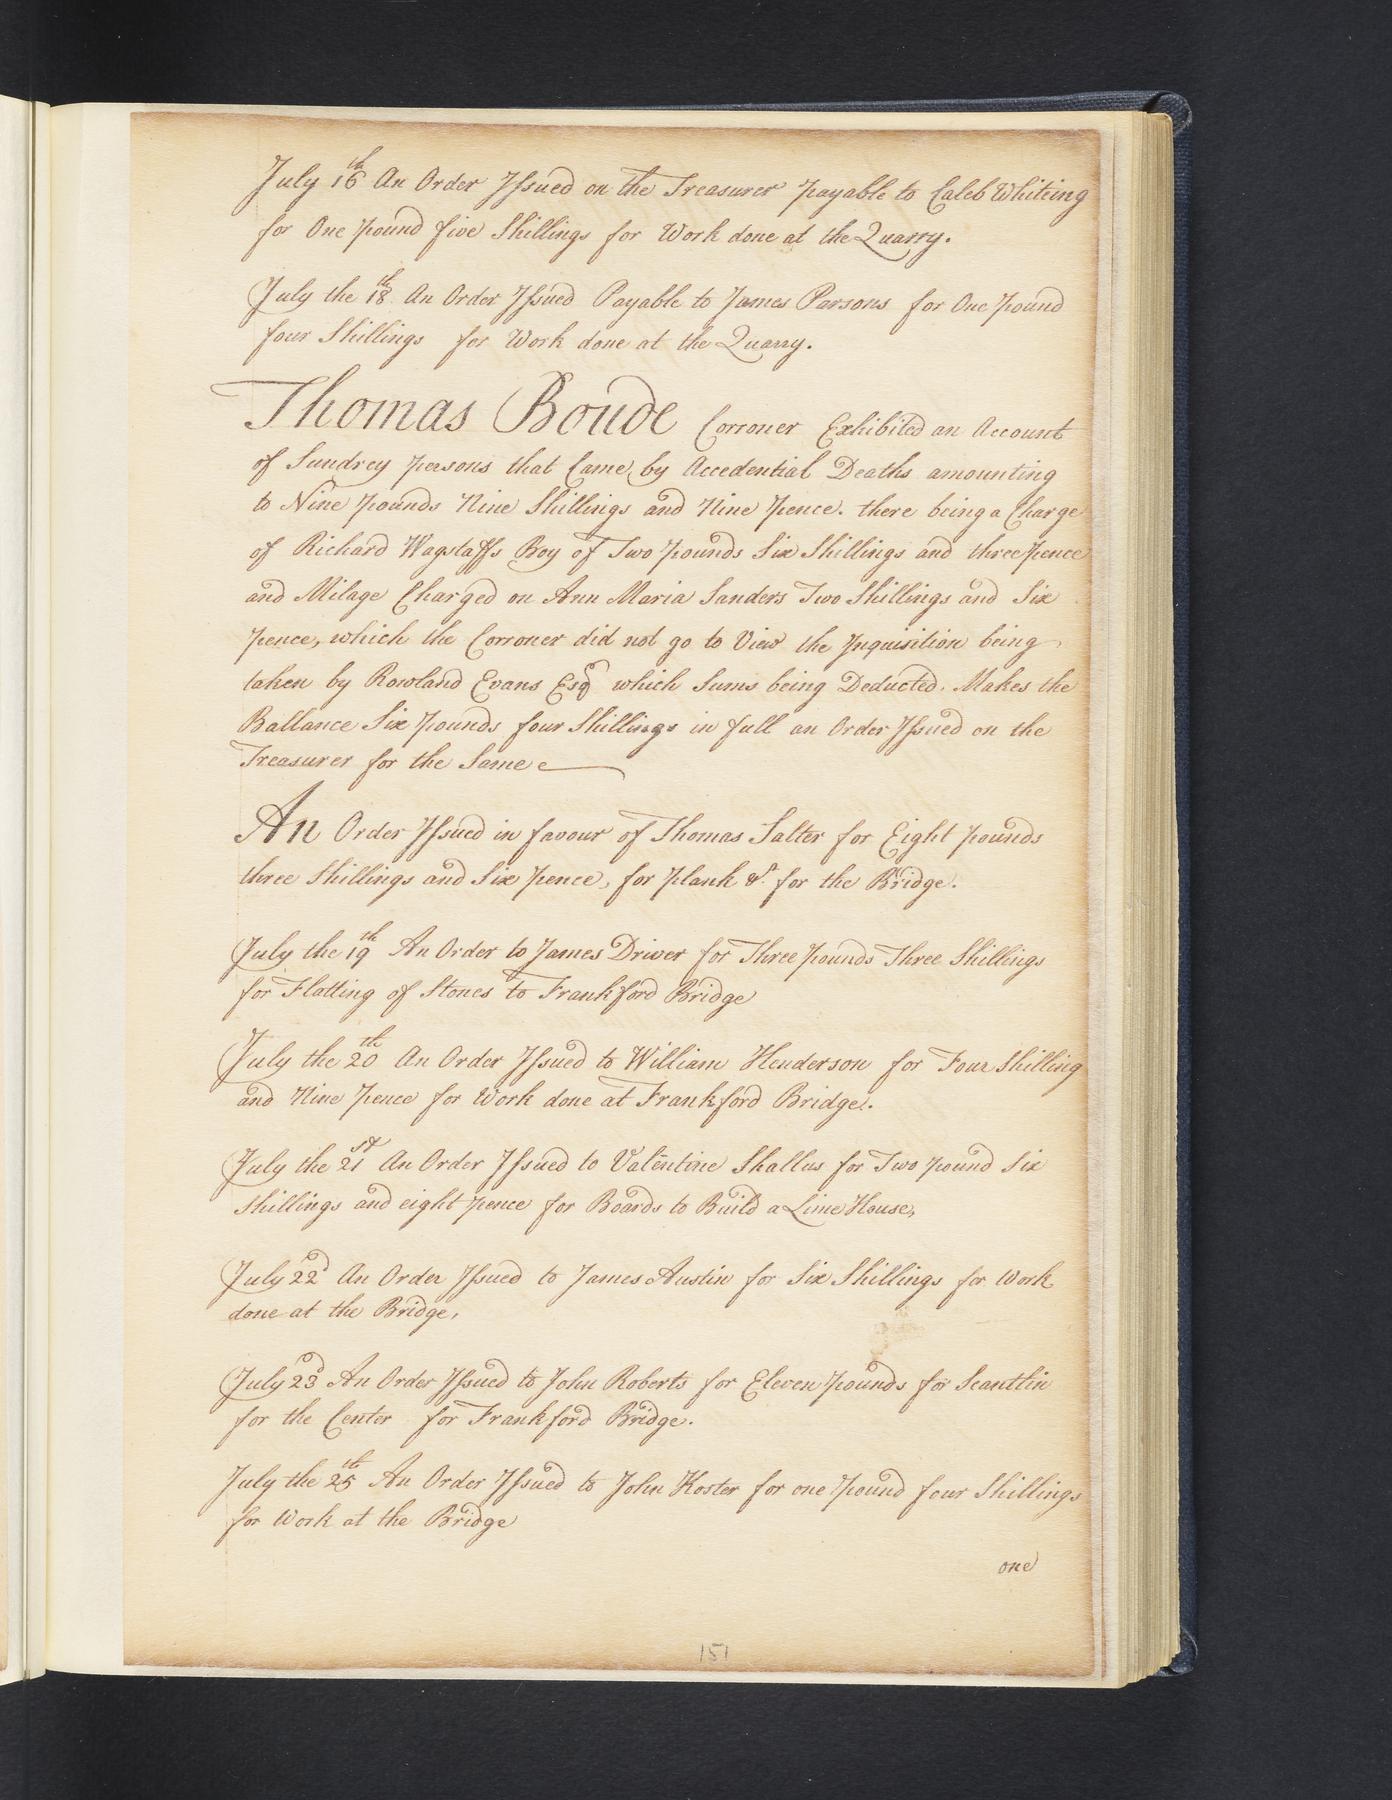 July 16th An Order Issued on the Treasurer payable to Caleb Whiteing
for One pound five Shillings for Work done at the Quarry.
July the 18th An Order Issued Payable to James Parsons for One pound
four Shillings for Work done at the Quarry.
Thomas Boude Corroner Exhibited an Account
of Sundrey persons that Came by Accedential Deaths amounting
to Nine pounds Nine Shillings and Nine pence. there being a Charge
of Richard Wagstaffs Boy of Two pounds Six Shillings and three pence
and Milage Charged on Ann Maria Sanders Two Shillings and Six
pence, which the Corroner did not go to View the Inquisition being
taken by Rowland Evans Esqr which Sums being Deducted. Makes the
Ballance Six pounds four Shillings in full an Order Issued on the
Treasurer for the Same
An Order Issued in favour of Thomas Salter for Eight pounds
three Shillings and Six pence, for plank &c. for the Bridge.
July the 19th An Order to James Driver for Three pounds Three Shillings
for Flatting of Stones to Frankford Bridge
July the 20th An Order Issued to William Henderson for Four Shilling
and Nine Pence for Work done at Frankford Bridge.
July the 21st An Order Issued to Valentine Shallus for Two pound Six
Shillings and eight pence for Boards to Build a Lime House,
July 22d An Order Issued to James Austin for Six Shillings for Work
done at the Bridge,
July 23d An Order Issued to John Roberts for Eleven pounds for Scantlin
for the Center for Frankford Bridge.
July the 25th An Order Issued to John Koster for one pound four Shillings
for Work at the Bridge
one
151